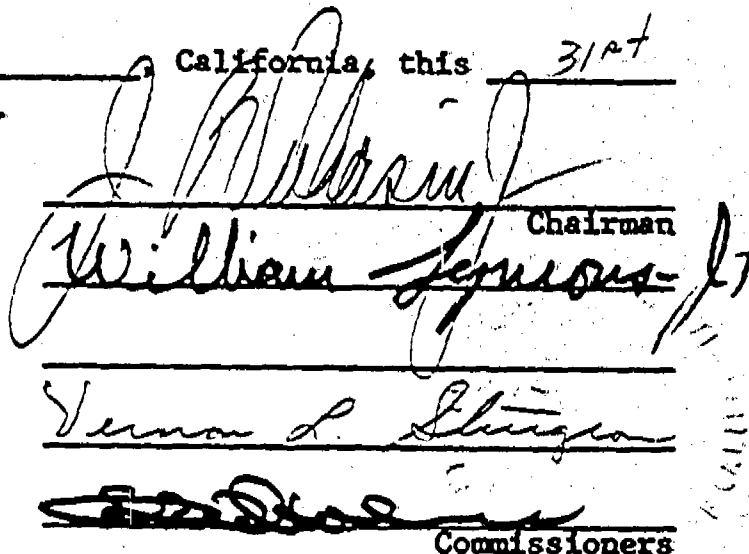 California, this 31st
Chairman
William Symons Jr
Vernon L. Sturgeon
Commissioners